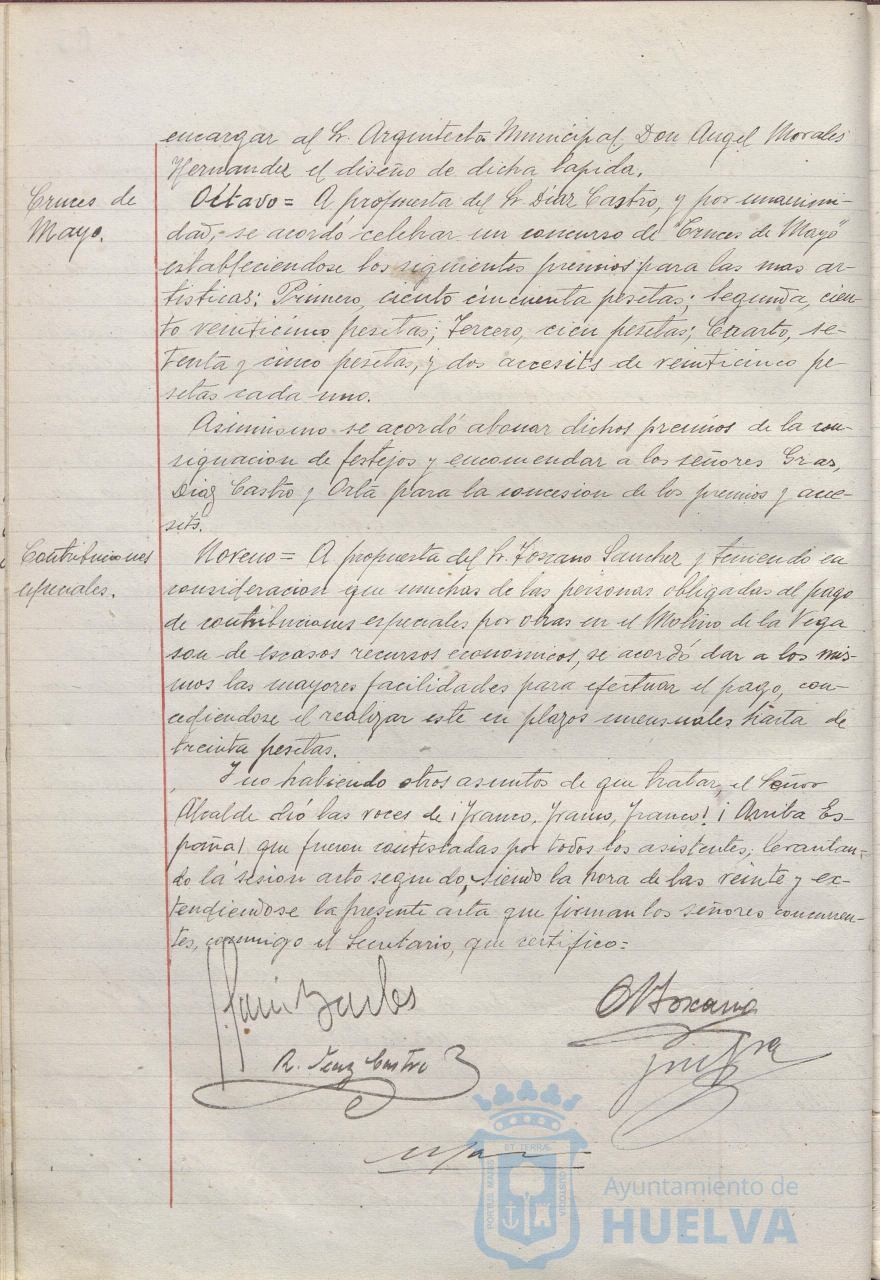 encargar al Sr. Arquitecto Municipal Don Angel Morales
Hernandez el diseño de dicha lapida.
Cruces de
Mayo.
Octavo = A propuesta del Sr Díaz Castro, y por unanimi-
dad, se acordó celebrar un concurso de "Cruces de Mayo"
estableciendose los siguientes premios para las mas ar-
tisticas: Primero, ciento cincuenta pesetas; Segundo, cien-
to veinticinco pesetas; Tercero, cien pesetas; Cuarto, se-
tenta y cinco pesetas, y dos accesits de veinticinco pe-
setas cada uno.
Asimismo se acordó abonar dichos premios de la con-
signacion de festejos y encomendar a los señores
Diaz Castro y Orta para la concesion de los premios y acce-
sits.
Contribuciones
especiales.
Noveno = A propuesta del Sr. Toscano Sanchez y teniendo en
consideracion que muchas de las personas obligadas al pago
de contribuciones especiales por obras en el Molino de la Vega
son de escasos recursos economicos, se acordó dar a los mis-
mos las mayores facilidades para efectuar el pago, con-
cediendose el realizar este en plazos mensuales hasta de
treinta pesetas.
Y no habiendo otros asuntos de que tratar, el Señor
Alcalde dió las voces de ¡Franco, Franco, Franco! ¡Arriba Es-
paña! que fueron contestadas por todos los asistentes; levantan-
do la sesion acto seguido, siendo la hora de las veinte y ex-
tendiendose la presente acta que firman los señores concurren-
tes, conmigo el Secretario, que certifico =
Toscano
R. Diaz Castro
ET TERRÆ
PORTUS MARIS
CUSTODIA
Ayuntamiento de
HUELVA